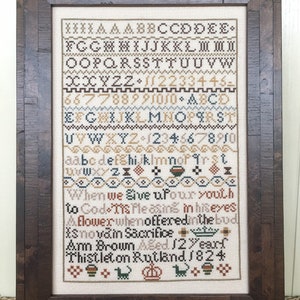 IIIIAAABBCCDDEE
FFGGHHIIJJKKLLMMII
OOPPQRSSTTUUVVW
XXYZZ 1122334446
66778899101010 ABCD
EFGHIJKLMNOPQRST
UVWXYZ 12346789 10
aabcdefghiklmnopqrst
uvwxyz
When we give up our youth
to God Tis Pleasing in his eyes
A flower when offered in the bud
Is no vain Sacrifice
Ann Brown Aged 12 Years
Thistleton Rutland 1824